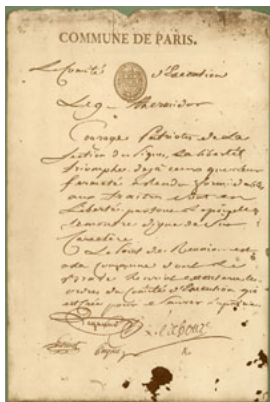 COMMUNE DE PARIS.
Le Comité d'Execution
Le 9 Thermidor
Courage Patriotes de la
Section des Piques la liberté
triomphe deja ceux que leur
fermeté a rendu formidables
aux traitres sont en
liberté partout le peuple
se montre digne de son
caractère
Le Point de Reunion est
a la Commune dont le
brave Henriot executera les
ordres du Comité d'Execution qui
est créé pour sauver la patrie
Legrand Lerebours
Louvet Payan Ro